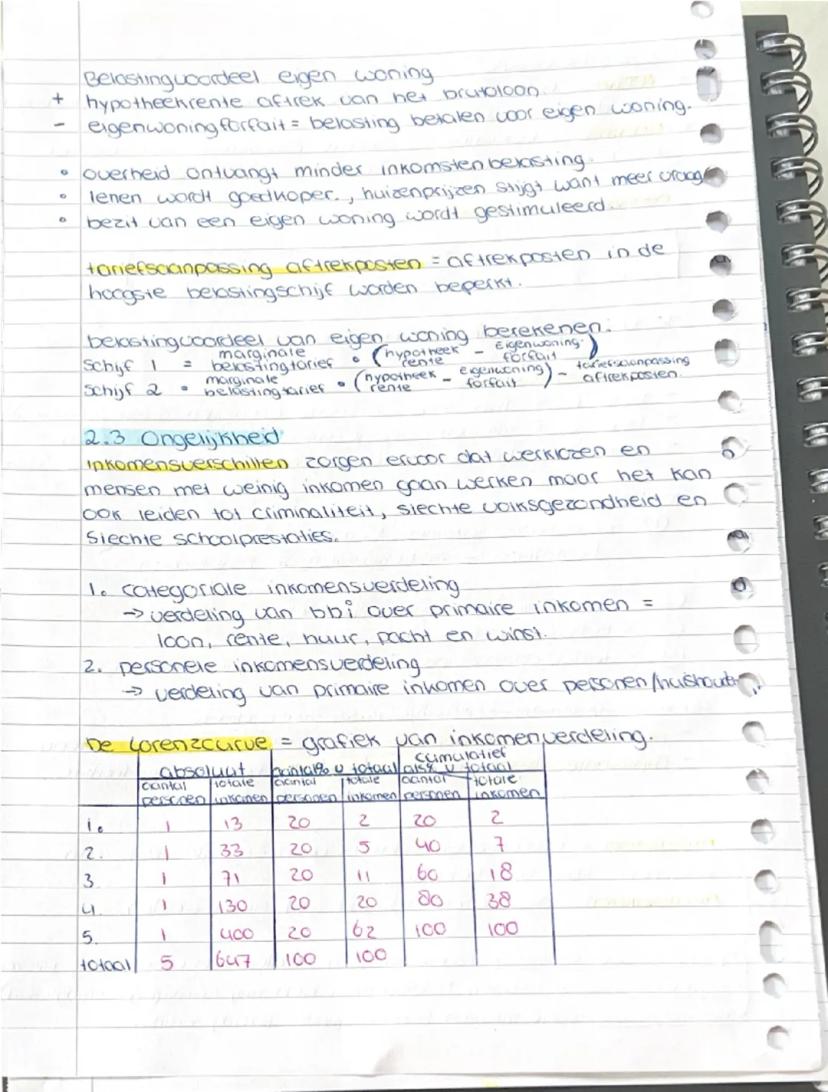 Belastingvoordeel eigen woning
+ hypotheekrente aftrek van het brutoloon.
- eigenwoningforfait = belasting betalen voor eigen woning.
• overheid ontvangt minder inkomstenbelasting.
• lenen wordt goedkoper., huizenprijzen stijgt want meer vraag
• bezit van een eigen woning wordt gestimuleerd.
tariefsaanpassing aftrekposten = aftrekposten in de
hoogste belastingschijf worden beperkt.
belastingvoordeel van eigen woning berekenen:
Schijf 1 = marginale belastingtarief • (hypotheek rente - Eigenwoning forfait)
Schijf 2 = marginale belastingtarief • (hypotheek rente - eigenwoning forfait) - tariefsaanpassing aftrekposten.
2.3 Ongelijkheid
Inkomensverschillen zorgen ervoor dat werklozen en
mensen met weinig inkomen gaan werken maar het kan
ook leiden tot criminaliteit, slechte volksgezondheid en
slechte schoolprestaties.
1. categoriale inkomensverdeling
→ verdeling van bbi over primaire inkomen =
loon, rente, huur, pacht en winst.
2. personele inkomensverdeling
→ verdeling van primaire inkomen over personen/huishoud
De Lorenzcurve = grafiek van inkomenverdeling.
absoluut aantal% v totaal cumulatief als% v totaal
aantal personen totale inkomen aantal personen totale inkomen aantal personen totale inkomen
1. 1 13 20 2 20 2
2. 1 33 20 5 40 7
3 1 71 20 11 60 18
4. 1 130 20 20 80 38
5. 1 400 20 62 100 100
totaal 5 647 100 100